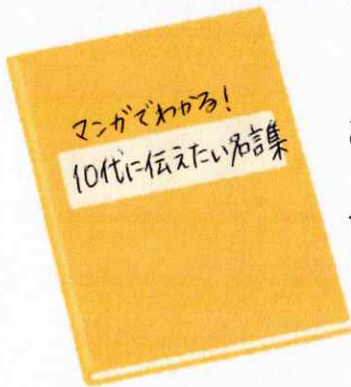 マンガでわかる!
10代に伝えたい名言集